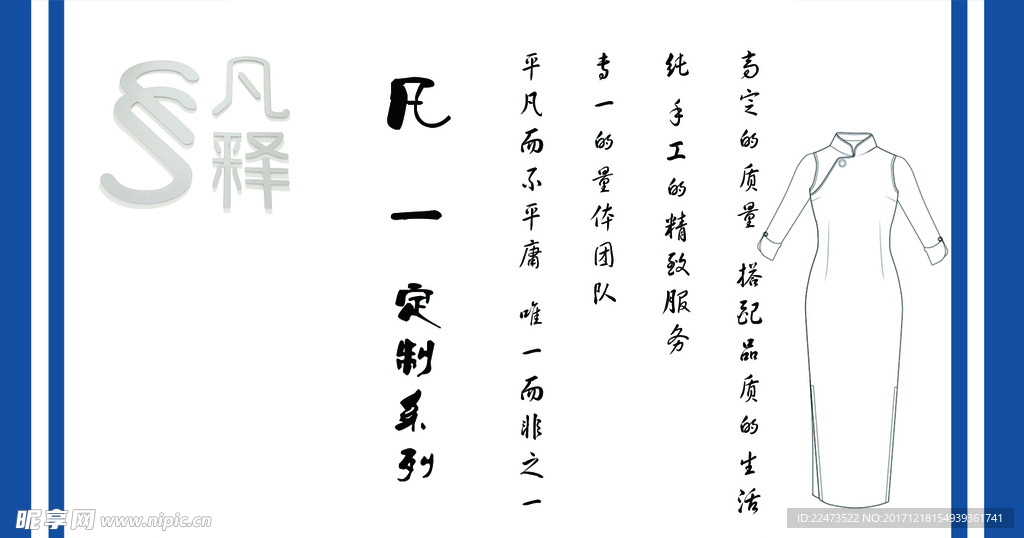 高定的质量 搭配品质的生活
纯手工的精致服务
专一的量体团队
平凡而不平庸 唯一而非之一
凡一定制系列
凡释
昵享网 www.nipic.cn
ID:22473522 NO:20171218154939361741